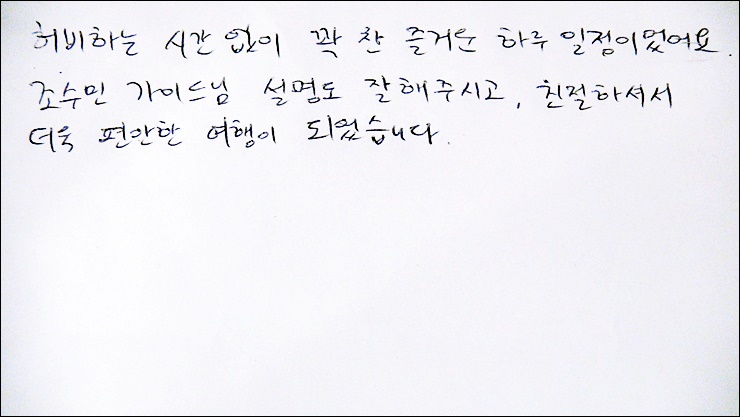 허비하는 시간 없이 꽉 찬 즐거운 하루 일정이었어요.
조수민 가이드님 설명도 잘해주시고, 친절하셔서
더욱 편안한 여행이 되었습니다.